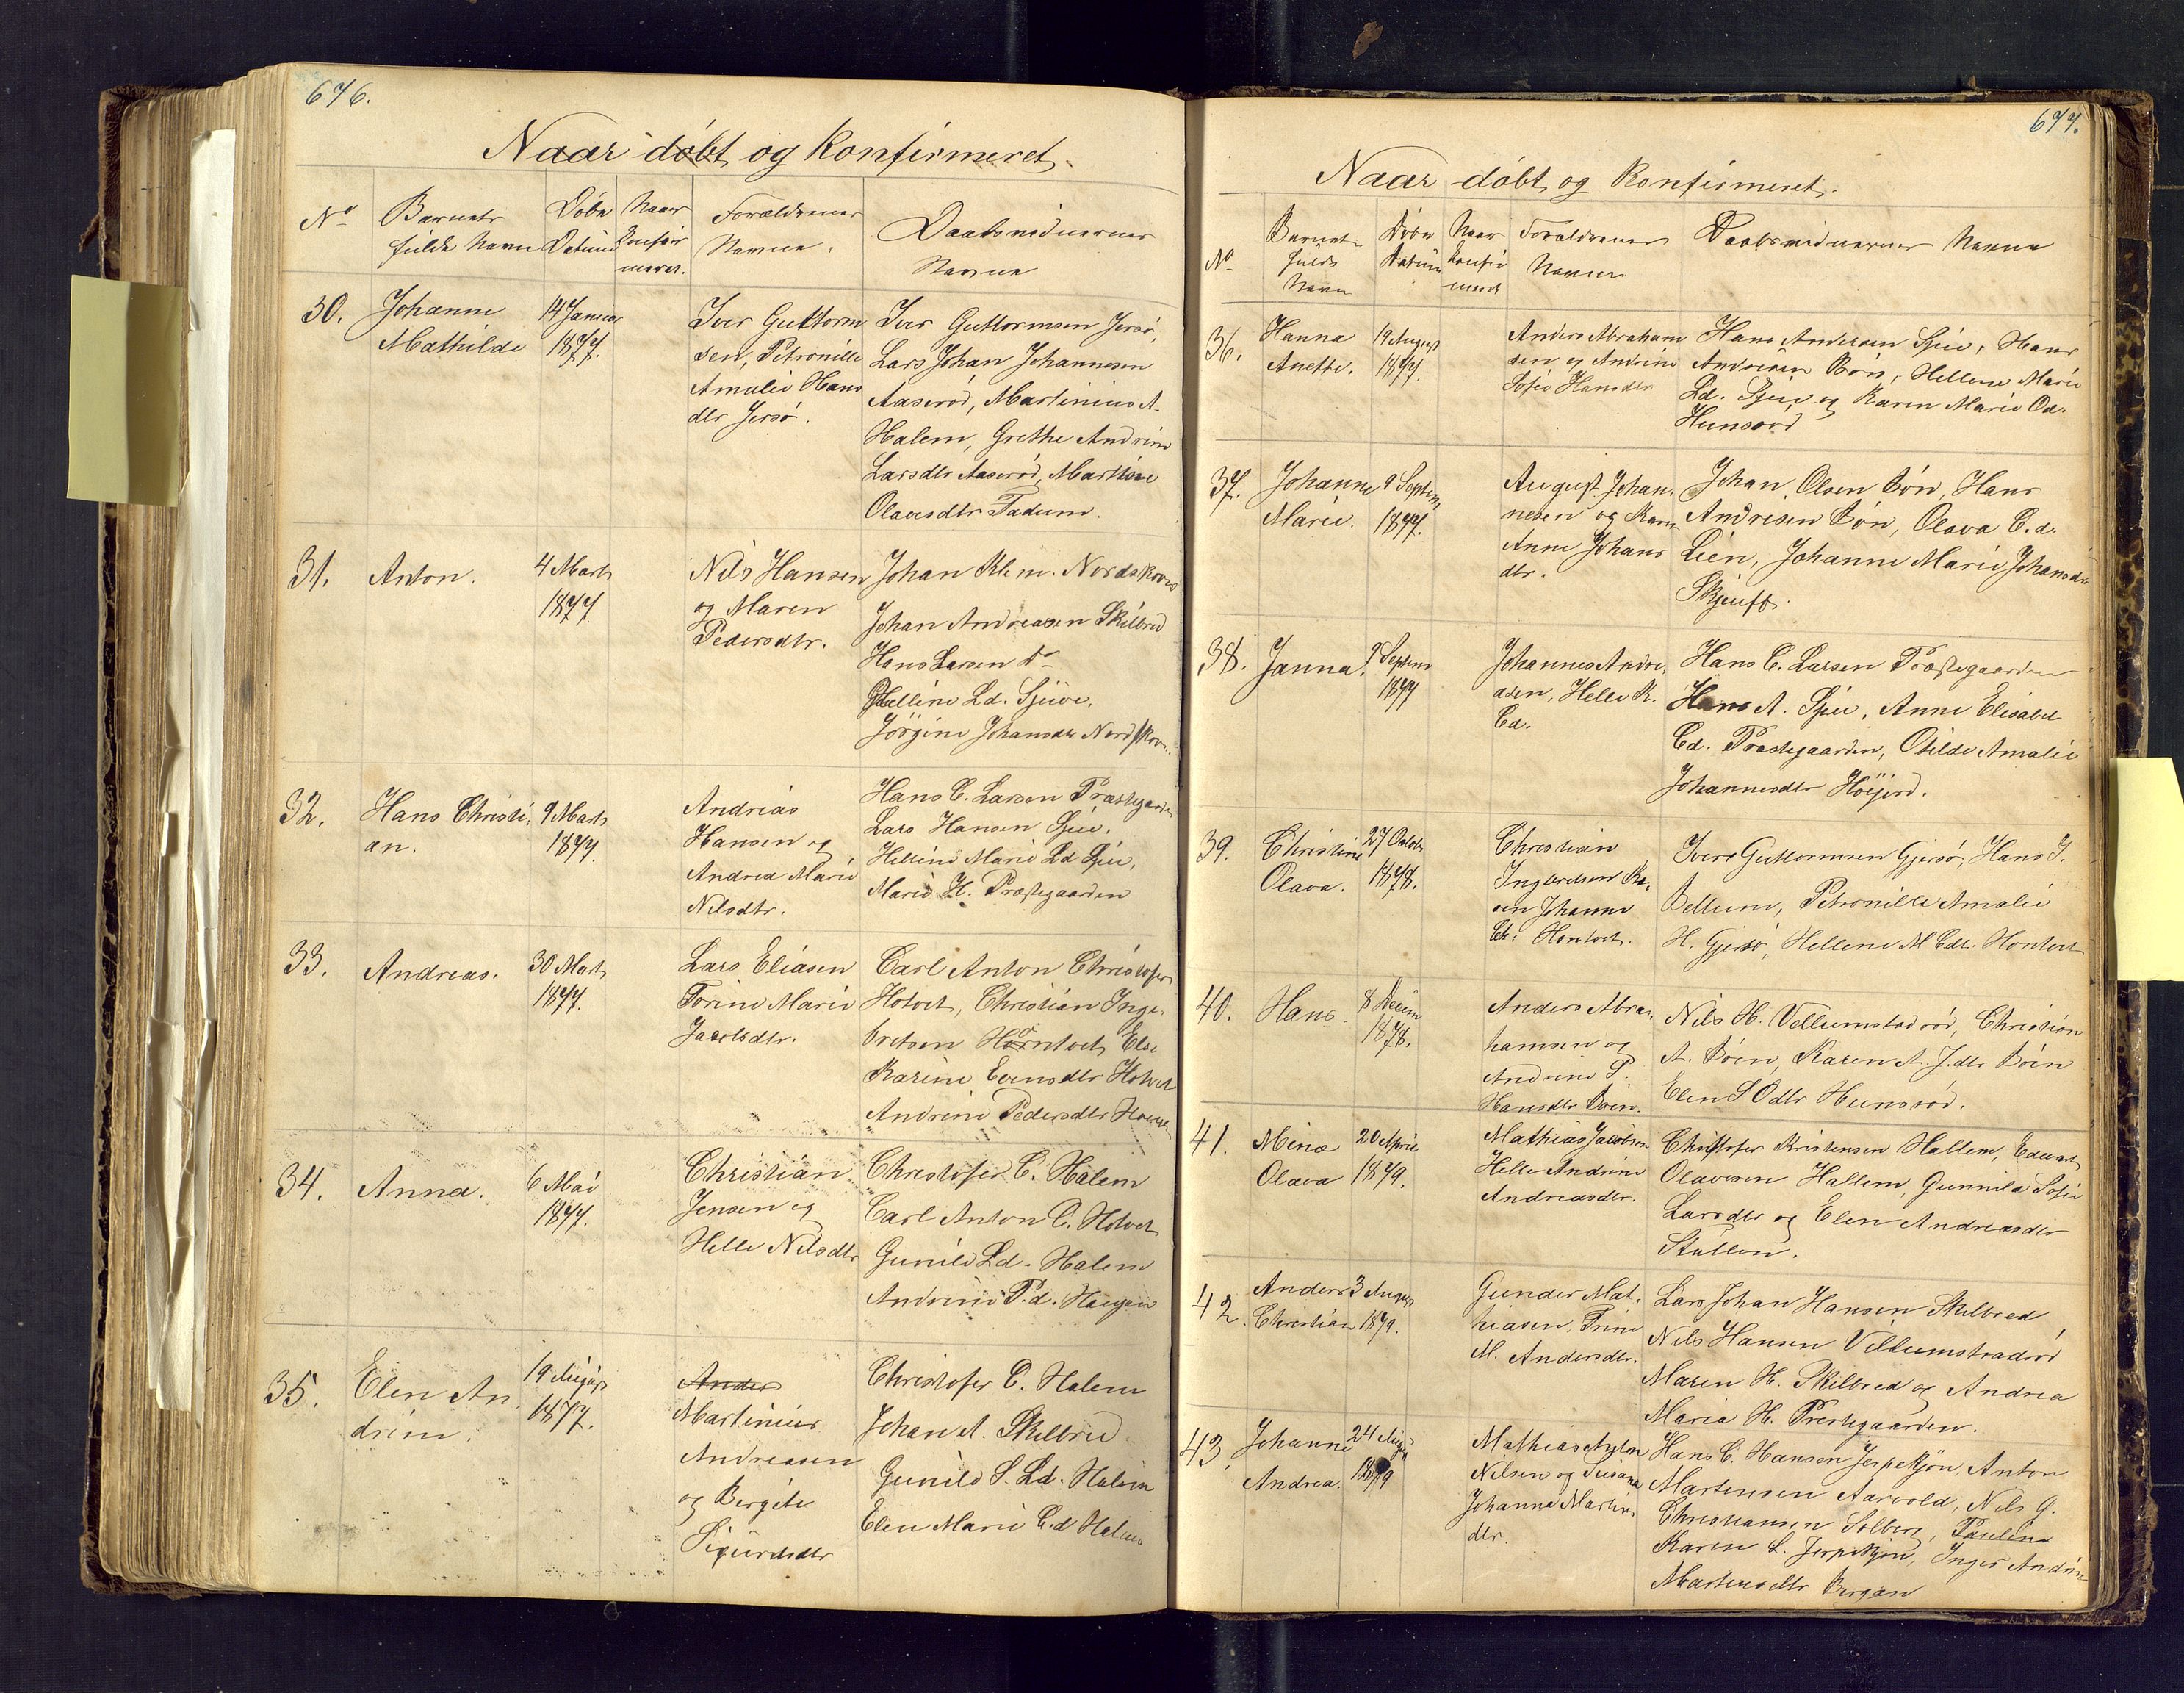 676.
Naar döbt og Konfirmeret.
No
Barnets fulde Navn
Döbn Datum
Naar Konfirmeret.
Forældrenes Navne.
Daabsvidnernes Navne
30.
Johanne
Mathilde
14 Januar
1877.
Iver Guttorm
sen, Petronille
Amalie Hans
dtr Jersö.
Iver Guttormsen Jersö,
Lars Johan Johannesen
Aaseröd, Martinius A.
Halem, Grethe Andrine
Larsdtr Aaseröd, Martine
Olavesdtr Tadum.
31.
Anton.
4 Marts
1877.
Nils Hansen
og Maren
Pedersdtr.
Johan Klem. Nordskoven
Johan Andreasen Skilbred
Hans Larsen Do
Helline Ld. Sjuve.
Jörgine Johansdtr Nordskov
32.
Hans Christi-
an.
9 Marts
1877.
Andreas
Hansen og
Andrea Marie
Nilsdtr.
Hans C. Larsen Præstegaarden
Lars Hansen Sjue.
Helline Marie Ld Sjue,
Marie H. Præstegaarden
33.
Andreas.
30 Marts
1877.
Lars Eliasen
Torine Marie
Jacobsdtr.
Carl Anton Christofer
Hotvet, Christian Inge-
bretsen Horntvet, Else
Karine Evensdtr Hotvet
Andrine Pedersdtr
34.
Anna.
6 Mai
1877.
Christian
Jensen og
Helle Nilsdtr
Christofer C. Halem
Carl Anton C. Hotvet
Gunild Ld. Halem
Andrine P.d. Haugen
35.
Elen An
drine.
19 August
1877.
Anders
Martinius
Andreasen
og Bergite
Sigurdsdtr
Christofer C. Halem
Johan A. Skilbred
Gunild S. Ld. Halem
Elen Marie C.d Halem
677.
Naar döbt og Konfirmeret.
No
Barnets fulde Navn
Döbn Datum
Naar Konfirmeret
Forældrenes Navne
Daabsvidnernes Navne
36.
Hanna
Anette.
19 August
1877.
Anders Abraham
sen og Andrine
Sofie Hansdtr
Hans Andersen Sjue, Hans
Andresen Bön, Hellene Marie
Ld. Sjue og Karen Marie Od.
Hunsröd
37.
Johanne
Marie.
9 Septem
1877.
August Johan-
nesen og Karen
Anne Johans
dtr.
Johan Olsen Bön, Hans
Andresen Bön, Olava C.d.
Lien, Johanne Marie Johansdtr
38.
Janna.
9 Septem
1877
Johannes Andre-
asen, Helle K.
Cd.
Hans C. Larsen Præstegaarden
Hans A. Sjue, Anne Elisabet
Cd. Præstegaarden, Otilde Amalie
Johannesdtr Höijord.
39.
Christine
Olava.
27 Octob
1878.
Christian
Ingbretsen Ka-
ren Johanne
Ch: Horntvet.
Iver Guttormsen Gjersö, Hans J.
Vellum, Petronille Amalie
H. Gjersö, Hellene M Cdtr. Horntvet
40.
Hans
8 Decem
1878.
Anders Abra-
hamsen og
Andrine S.
Hansdtr Böen.
Nils H. Vellumstadröd, Christian
A. Böen, Karen A. J.dtr Böen
Elen S Odtr Hunsröd.
41.
Mina
Olava
20 April
1879.
Mathias Jacobsen
Helle Andrine
Andreasdtr.
Christofer Kristensen Hallem, Edvart
Olavesen Hallem, Gunnild Sofie
Larsdtr og Elen Andreasdtr
Stullen.
42.
Anders
Christian
3 August
1879.
Gunder Mat-
hiasen, Trine
M. Andersdtr.
Lars Johan Hansen Skilbred
Nils Hansen Vellumstradröd
Maren H. Skilbred og Andrea
Maria H. Prestegaarden.
43.
Johanne
Andrea.
24 August
1879
Mathias Anton
Nilsen og Susana
Johanne Martins
dtr.
Hans C. Hansen Jerpekjön, Anton
Martensen Aarvold, Nils G.
Christiansen Solberg, Paulina
Karen L. Jerpekjön, Inger Andrine
Martensdtr Bergan